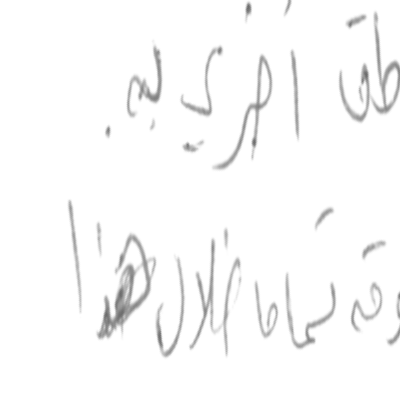 طق أخرى به.
وقة تماما خلال هذا ا